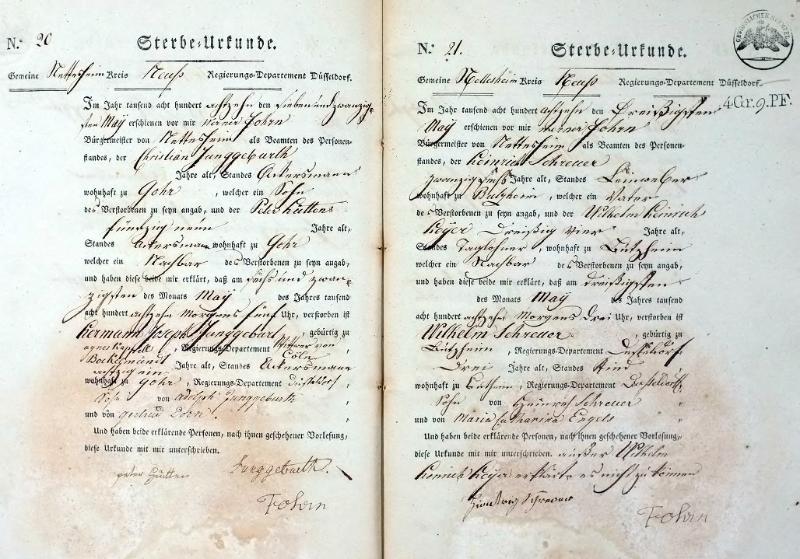 N.º 20 Sterbe-Urkunde.
Gemeine Nettesheim Kreis Neuß Regierungs-Departement Düsseldorf.
Im Jahr tausend acht hundert achtzehn den siebenundzwanzig-
sten May erschienen vor mir Fohrn
Bürgermeister von Nettesheim als Beamten des Personen-
standes, der Christian Junggeburth
Jahre alt, Standes Ackersmann
wohnhaft zu Gohr, welcher ein Sohn
des Verstorbenen zu seyn angab, und der Peter Hütten
fünfzig neun Jahre alt,
Standes Ackersman wohnhaft zu Gohr
welcher ein Nachbar des Verstorbenen zu seyn angab,
und haben diese beide mir erklärt, daß am sechs und zwan-
zigsten des Monats May des Jahres tausend
acht hundert achtzehn Morgens fünf Uhr, verstorben ist
Hermann Joseph Junggeburt, gebürtig zu
, Regierungs-Departement Cöln
achtzig ein Jahre alt, Standes Ackersmann
wohnhaft zu Gohr, Regierungs-Departement Düsseldorf
Sohn von Junggeburth
und von
Und haben beide erklärende Personen, nach ihnen geschehener Vorlesung,
diese Urkunde mit mir unterschrieben.
peter Hütten Junggeburth.
Fohrn
N.º 21. Sterbe-Urkunde.
Gemeine Nettesheim Kreis Neuß Regierungs-Departement Düsseldorf.
4 Gr. 9. PF.
Im Jahr tausend acht hundert achtzehn den Dreißigsten
May erschienen vor mir Fohrn
Bürgermeister von Nettesheim als Beamten des Personen-
standes, der Heinrich Schreuer
zwanzig sechs Jahre alt, Standes Leinweber
wohnhaft zu Butzheim, welcher ein Vater
des Verstorbenen zu seyn angab, und der Wilhelm Heinrich
Heyer Dreißig vier Jahre alt,
Standes Taglohner, wohnhaft zu Butzheim
welcher ein Nachbar des Verstorbenen zu seyn angab,
und haben diese beide mir erklärt, daß am dreißigsten
des Monats May des Jahres tausend
acht hundert achtzehn Morgens Drei Uhr, verstorben ist
Wilhelm Schreuer, gebürtig zu
Butzheim, Regierungs-Departement Düsseldorf
Drei Jahre alt, Standes Kind
wohnhaft zu Butzheim, Regierungs-Departement Düsseldorf
Sohn von Heinrich Schreuer
und von Maria Catharina Engels
Und haben beide erklärende Personen, nach ihnen geschehener Vorlesung,
diese Urkunde mit mir unterschrieben. außer Wilhelm
Heinrich Heyer erklärte es nicht zu können
Schreuer
Fohrn